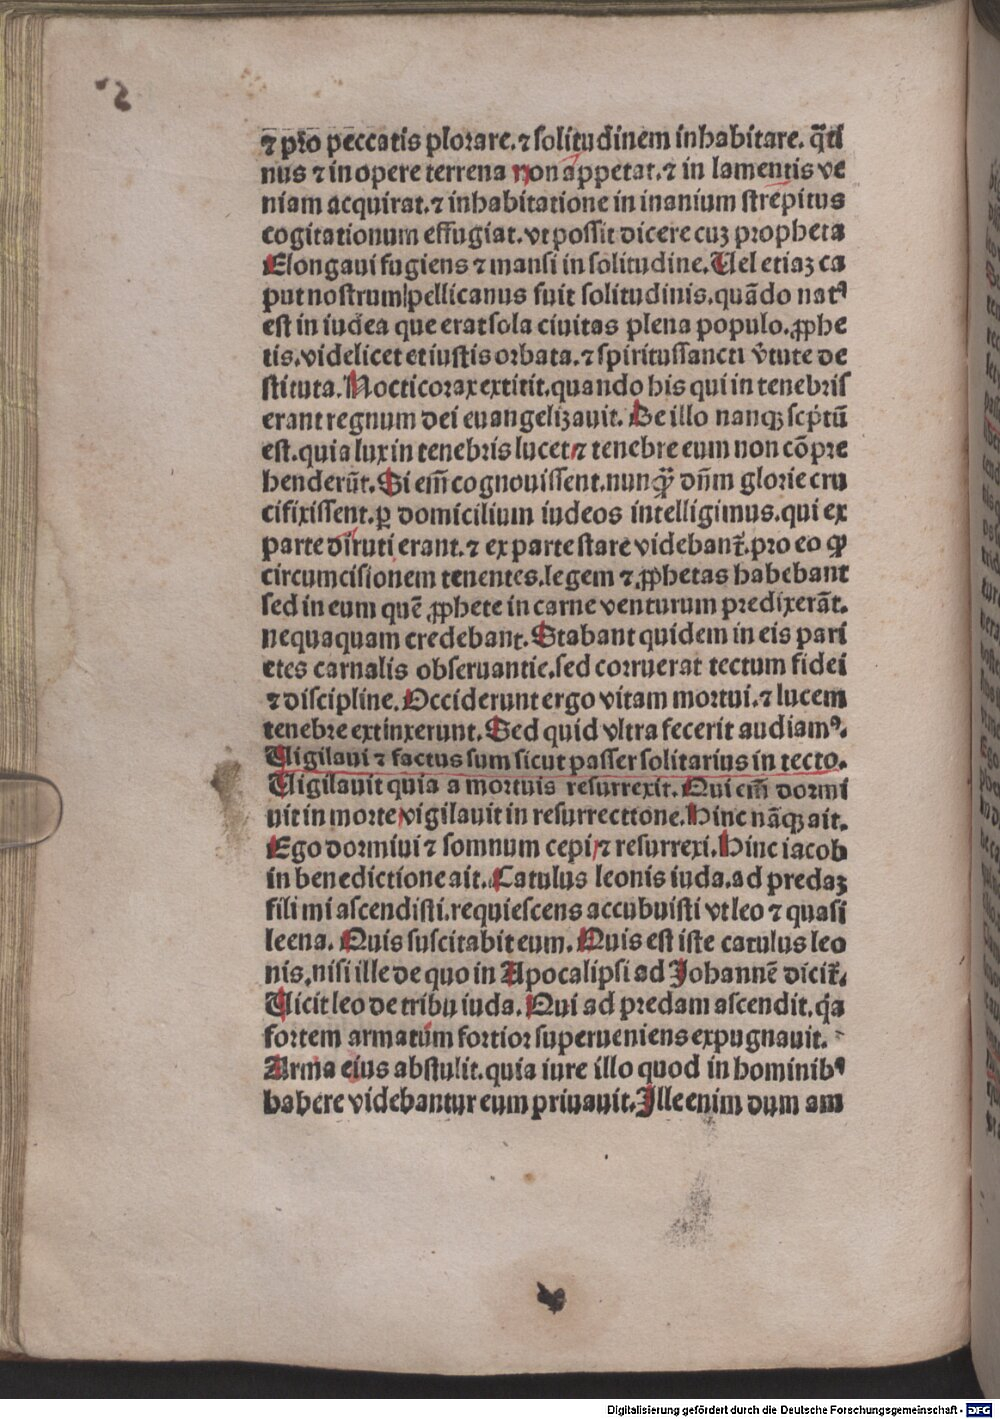 ⁊ pro peccatis plorare. ⁊ solitudinem inhabitare. q̃ti
nus ⁊ in opere terrena non appetat. ⁊ in lamentis ve
niam acquirat. ⁊ inhabitatione in inanium strepitus
cogitationum effugiat. vt possit dicere cuʒ propheta
Elongaui fugiens ⁊ mansi in solitudine. Uel etiaʒ ca
put nostrum pellicanus fuit solitudinis. quādo natꝰ
est in iudea que erat sola ciuitas plena populo. ꝓphe
tis. videlicet et iustis orbata. ⁊ spiritussancti v̾tute de
stituta. Nocticorax extitit. quando his qui in tenebris
erant regnum dei euangelizauit. De illo nanqʒ scptū
est. quia lux in tenebris lucet ⁊ tenebre eum non cōpre
henderūt. Si em̄ cognouissent. nunꝙ̄ dn̄m glorie cru
cifixissent. ꝑ domicilium iudeos intelligimus. qui ex
parte diruti erant. ⁊ ex parte stare videbant̄. pro eo ꝙ
circumcisionem tenentes. legem ⁊ ꝓphetas habebant
sed in eum quē ꝓphete in carne venturum predixerāt.
nequaquam credebant. Stabant quidem in eis pari
etes carnalis obseruantie. sed corruerat tectum fidei
⁊ discipline. Occiderunt ergo vitam mortui. ⁊ lucem
tenebre extinxerunt. Sed quid vltra fecerit audiamꝰ.
Uigilaui ⁊ factus sum sicut passer solitarius in tecto.
Uigilauit quia a mortuis resurrexit. Qui em̄ dormi
uit in morte vigilauit in resurrecttone. Hinc nāqʒ ait.
Ego dormiui ⁊ somnum cepi ⁊ resurrexi. Hinc iacob
in benedictione ait. Catulus leonis iuda. ad predaʒ
fili mi ascendisti. requiescens accubuisti vt leo ⁊ quasi
leena. Quis suscitabit eum. Quis est iste catulus leo
nis. nisi ille de quo in Apocalipsi ad Johannē dicit̄.
Uicit leo de tribu iuda. Qui ad predam ascendit. q̄a
fortem armatum fortior superueniens expugnauit.
Arma eius abstulit. quia iure illo quod in hominibꝰ
habere videbantur eum priuauit. Ille enim dum am
Digitalisierung gefördert durch die Deutsche Forschungsgemeinschaft - DFG